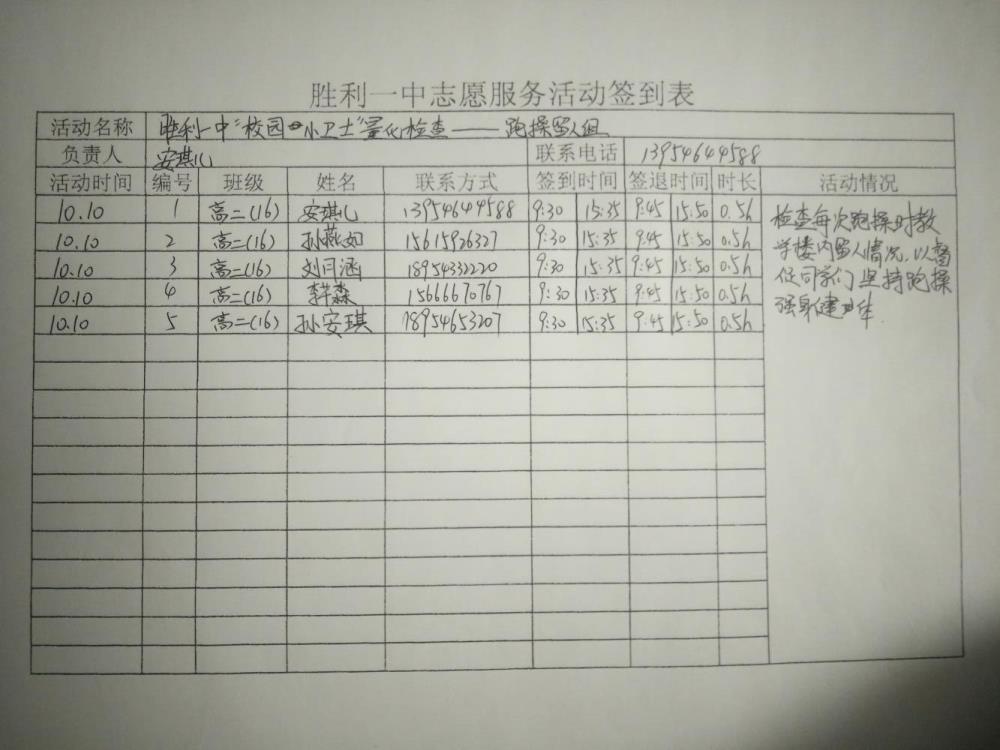 胜利一中志愿服务活动签到表
活动名称 胜利一中"校园小卫士"量化检查——跑操留人组
负责人 安琪儿 联系电话 13954644588
活动时间 编号 班级 姓名 联系方式 签到时间 签退时间 时长 活动情况
10.10 1 高二(16) 安琪儿 13954644588 9:30 15:35 9:45 15:50 0.5h
10.10 2 高二(16) 孙燕如 15615926327 9:30 15:35 9:45 15:50 0.5h
10.10 3 高二(16) 刘闩涵 18954332220 9:30 15:35 9:45 15:50 0.5h
10.10 4 高二(16) 李森 15666670767 9:30 15:35 9:45 15:50 0.5h
10.10 5 高二(16) 孙安琪 18954653207 9:30 15:35 9:45 15:50 0.5h
检查每次跑操时教
学楼内留人情况，以督
促同学们坚持跑操
强身健体.